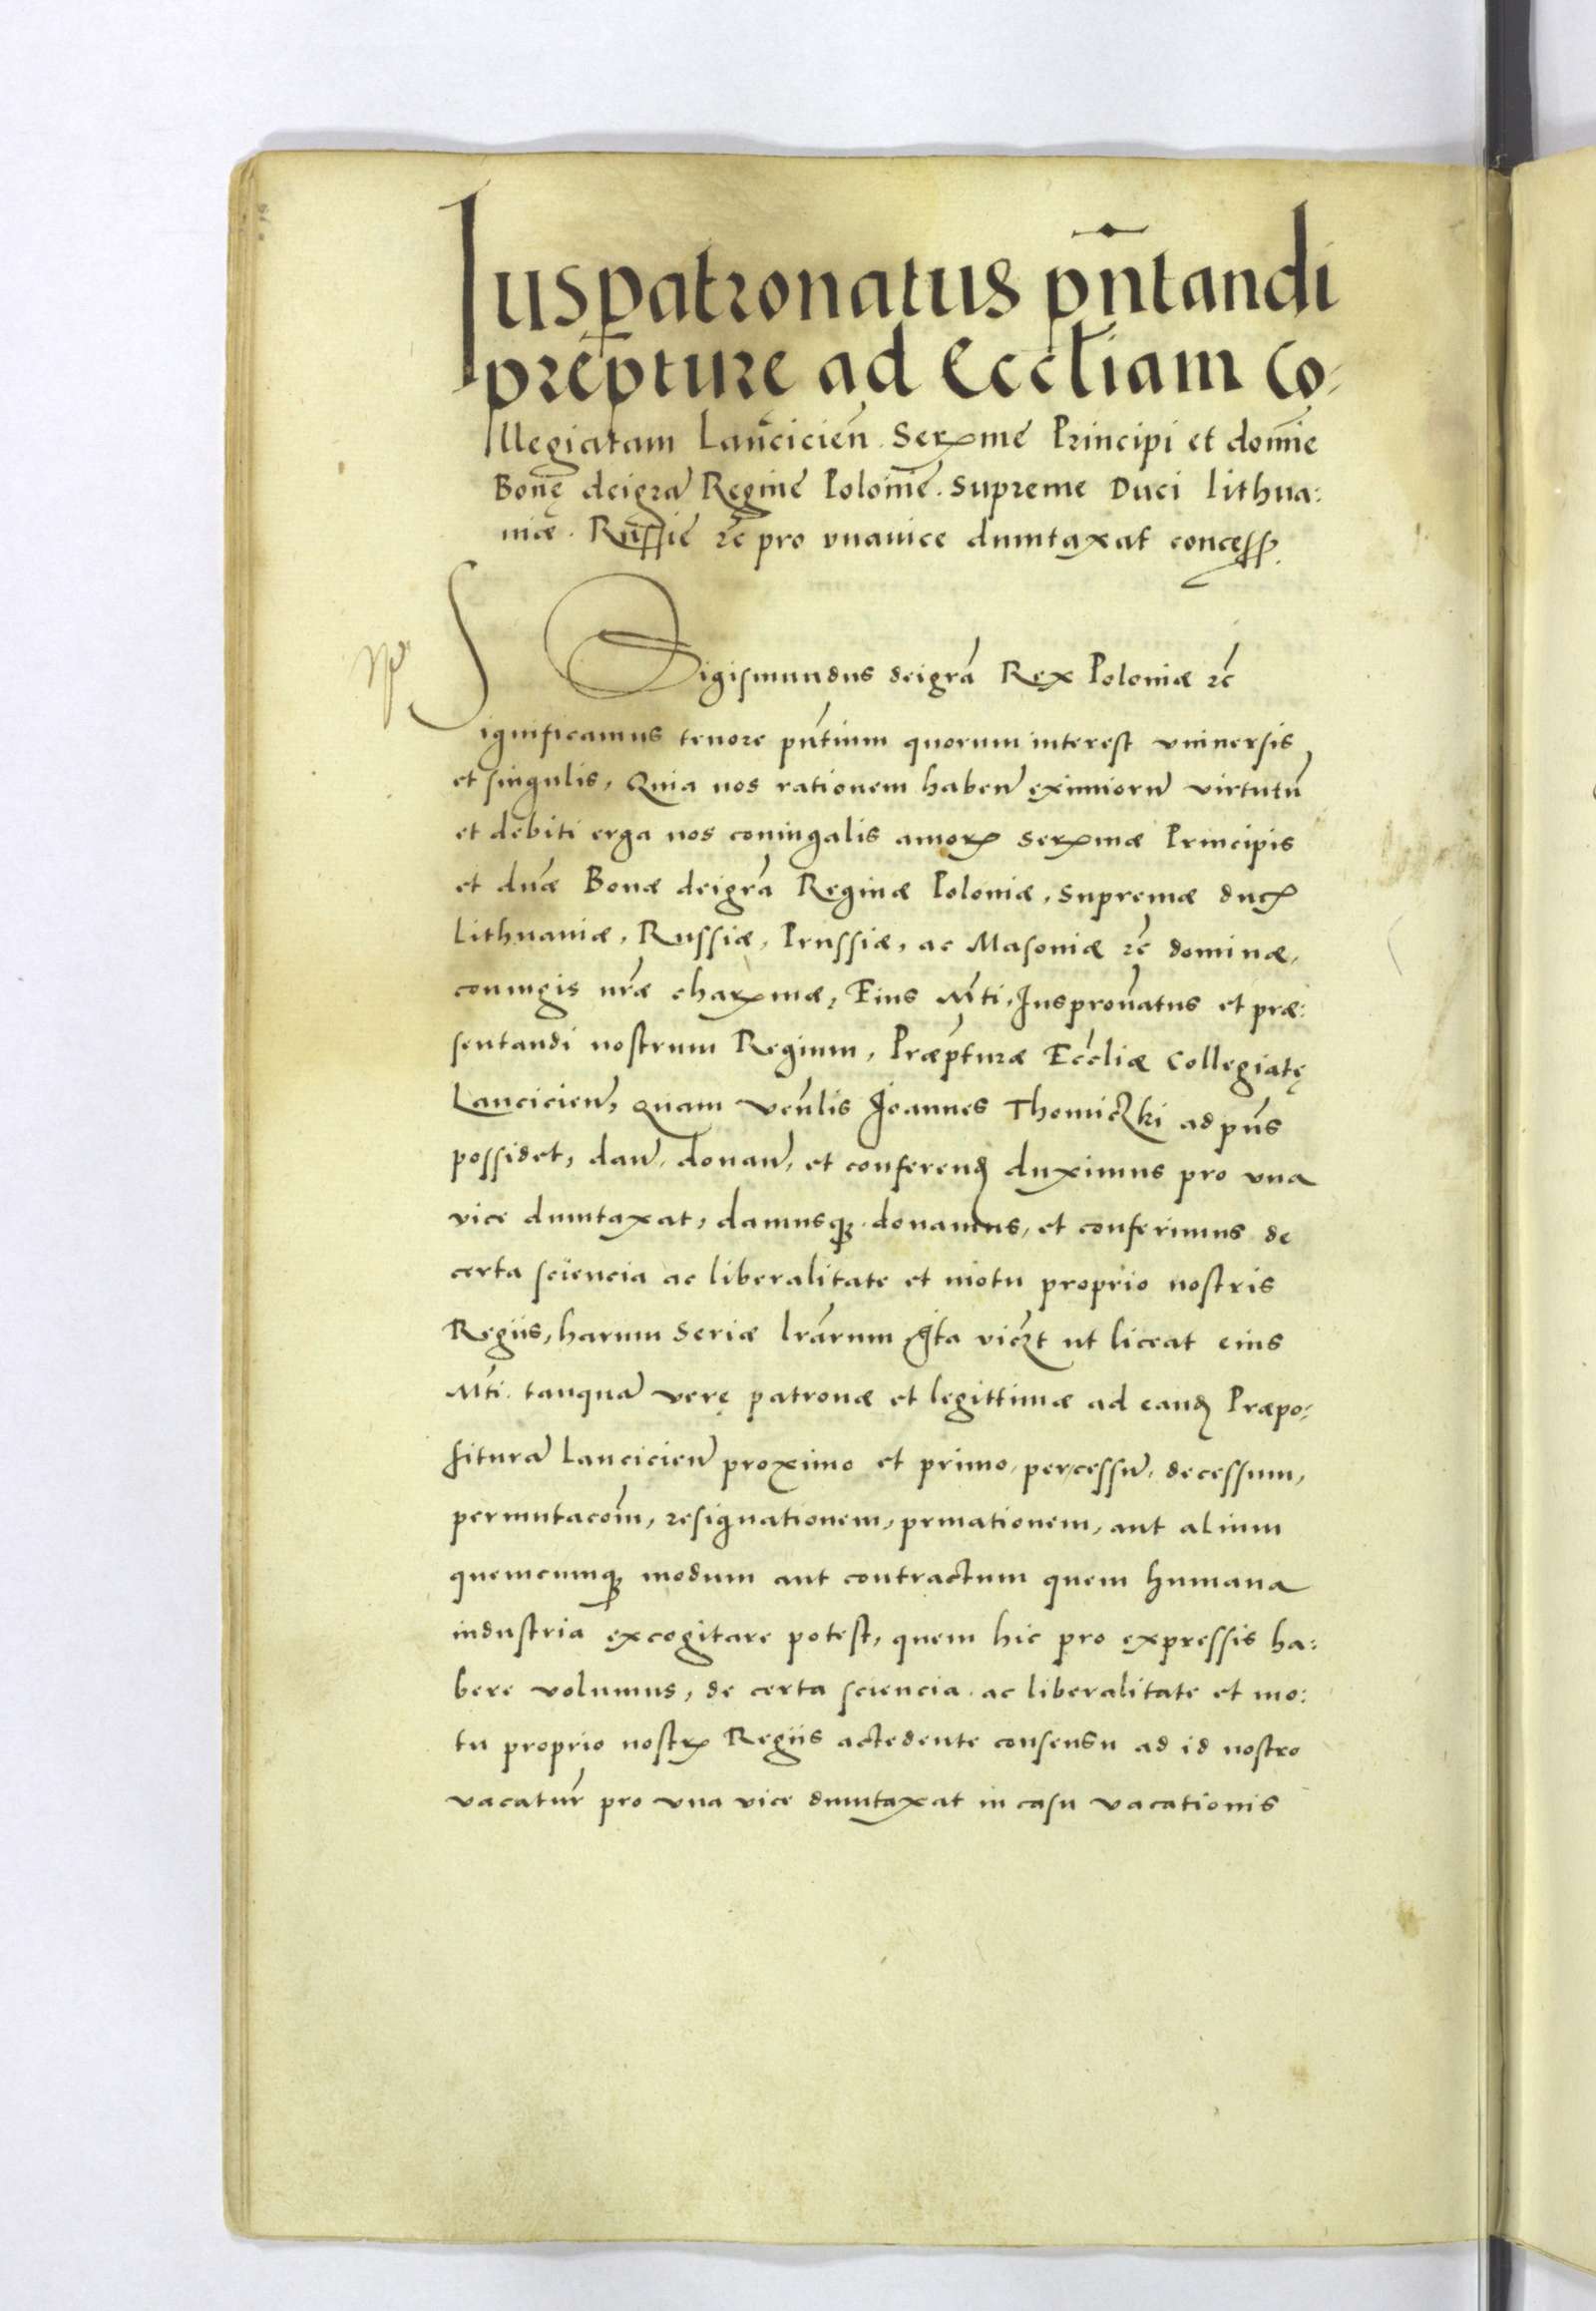 Iuspatronatus pñtandi
prepture ad Eccliam Co:
llegiatam Lancicień. Serx̃me Principi et domie
Bonę deigrã Regine Polonie. Supreme Duci Lithua:
niæ. Russie ꝛc̃ pro vnauice dumtaxat concess.
Sigismundus deigrã Rex Poloniæ ꝛc̃
Significamus tenore pñtium quorum interest vniuersis
et singulis, Quia nos rationem habeñ eximiorũ virtutũ
et debiti erga nos coniugalis amorꝭ Serꝭmæ Principis
et dnæ Bonæ deigrã Reginæ Poloniæ, supremæ ducꝭ
Lithuaniæ, Russiæ, Prussiæ, ac Masoniæ ꝛc̃ dominæ,
coniugis nr̃æ charꝭmæ, Eius Mti. Iuspronatus et præ:
sentandi nostrum Regium, Præpturæ Eccliæ Collegiatę
Lancicień, Quam venlis Ioannes Thomiczki ad pñs
possidet, dañ, donañ, et conferenđ duximus pro vna
vice dumtaxat, damusqꝫ donamus, et conferimus de
certa sciencia ac liberalitate et motu proprio nostris
Regiis, harum seriæ lrãrum Ita viczt ut liceat eius
Mti. tanquã verę patronæ et legittimæ ad eanđ Præpo:
siturã Lancicień proximo et primo, per cessũ, decessum,
permutacoĩm, resignationem, priuationem, aut alium
quemcumqꝫ modum aut contractum quem humana
industria excogitare potest, quem hic pro expressis ha:
bere volumus, de certa sciencia ac liberalitate et mo:
tu proprio nostrꝭ Regiis accedente consensu ad id nostro
vacatur̃ pro vna vice dumtaxat in casu vacationis